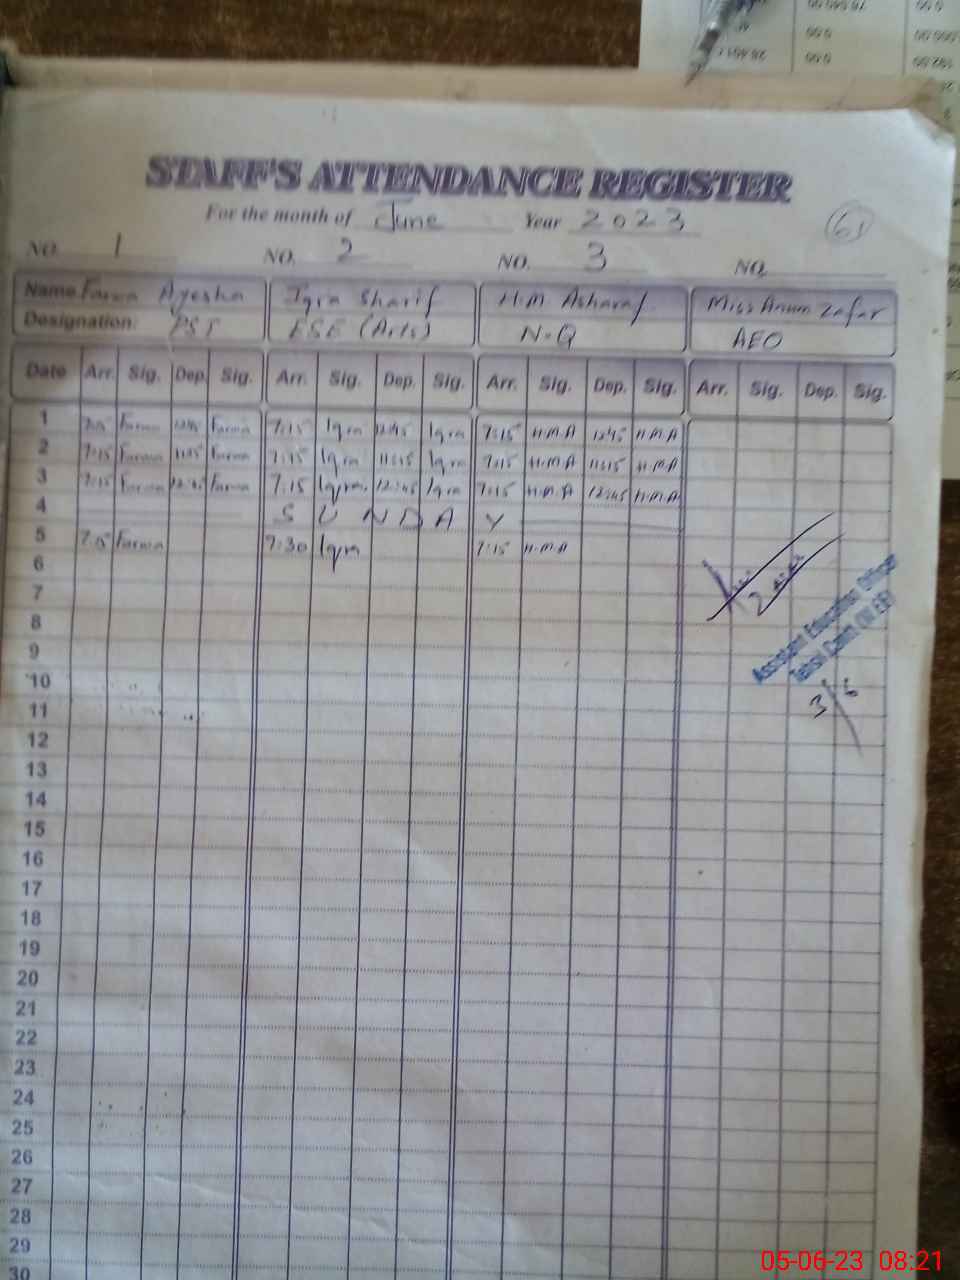 STAFF'S ATTENDANCE REGISTER
For the month of June Year 2023
61
NO. 1 NO. 2 NO. 3 NO.
Name Farwa Ayesha Iqra Sharif H.M Asharaf Miss Anum Zafar
Designation: PST ESE (Arts) N.Q AEO
Date Arr. Sig. Dep. Sig. Arr. Sig. Dep. Sig. Arr. Sig. Dep. Sig. Arr. Sig. Dep. Sig.
1 7:15 Farwa 12:45 Farwa 7:15 Iqra 12:45 Iqra 7:15 H.M.A 12:45 H.M.A
2 7:15 Farwa 11:15 Farwa 7:15 Iqra 11:15 Iqra 7:15 H.M.A 11:15 H.M.A
3 7:15 Farwa 12:45 Farwa 7:15 Iqra 12:45 Iqra 7:15 H.M.A 12:45 H.M.A
4 SUNDAY
5 7:15 Farwa 7:30 Iqra 7:15 H.M.A
6
7
8
Assistant Education Officer
9
10
3/6
11
12
13
14
15
16
17
18
19
20
21
22
23
24
25
26
27
28
29
30
05-06-23 08:21